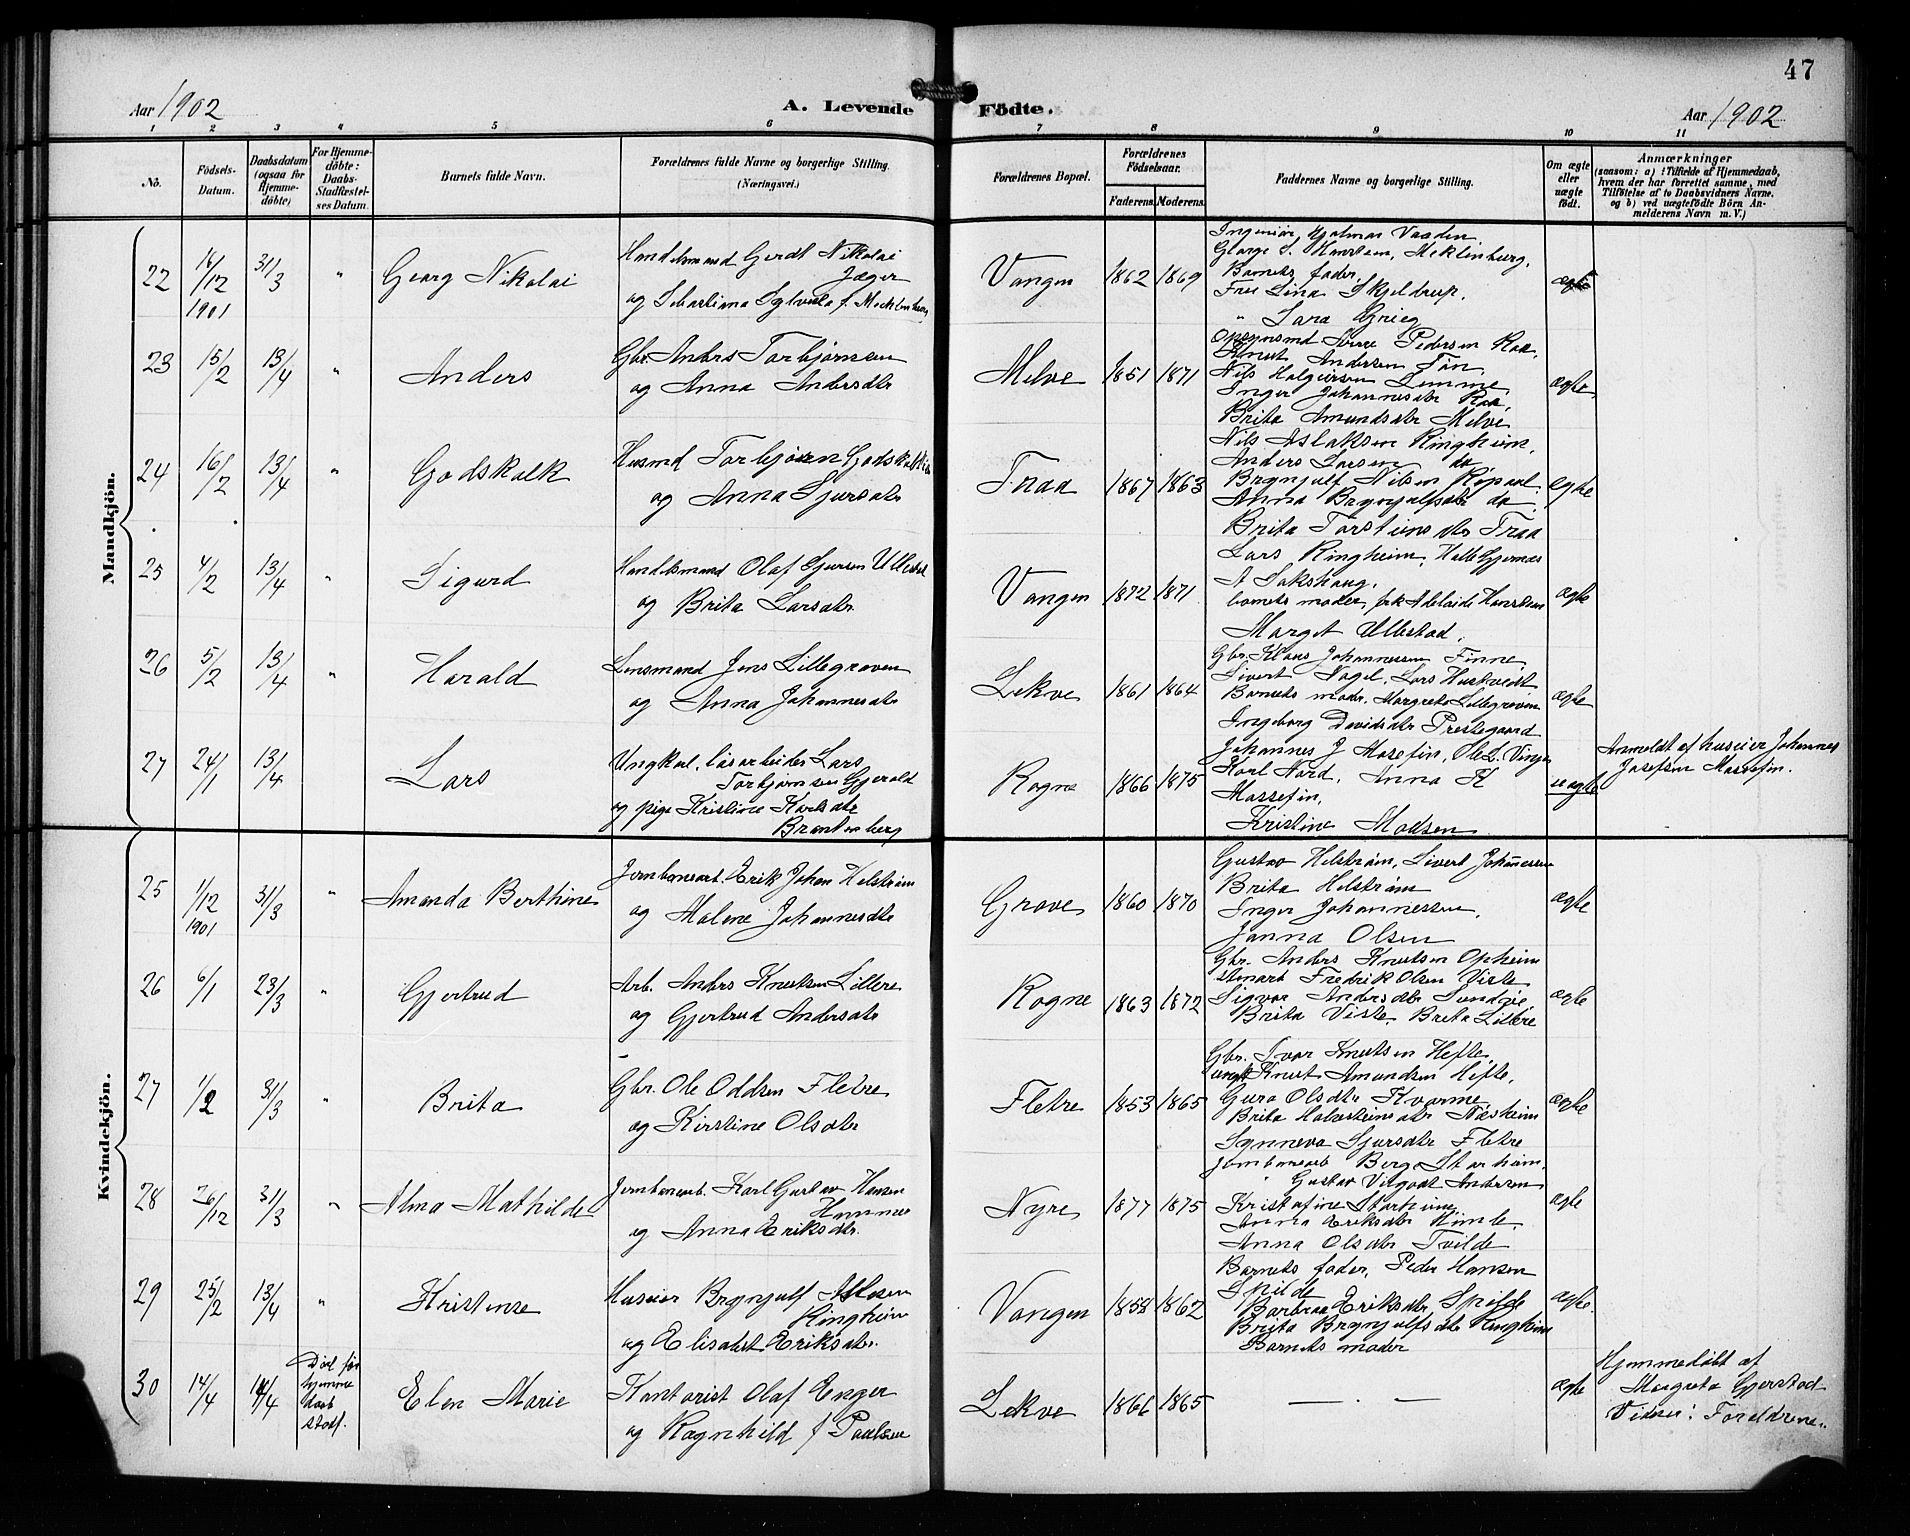 47
Aar 1902
A. Levende Födte.
Aar 1902
1 2 3 4 5 6 7 8 9 10 11
No.
Födsels-Datum.
Daabsdatum (ogsaa for Hjemme-döbte)
For Hjemme-döbte: Daabs-Stadfæstel-ses Datum.
Barnets fulde Navn.
Forældrenes fulde Navne og borgerlige Stilling.
(Næringsvei.)
Forældrenes Bopæl.
Forældrenes Födselsaar.
Faderens. Moderens.
Faddernes Navne og borgerlige Stilling.
Om ægte eller uægte födt.
Anmærkninger
(saasom: a) i Tilfælde af Hjemmedaab,
hvem der har forrettet samme, med
Tilföielse af to Daabsvidners Navne.
og b) ved uægtefödte Börn An-
melderens Navn m. V.)
Mandkjön.
22 16/12 1901 31/3 " Georg Nikolai
Handelsmand Gerdt Nikolai
Jæger
og Sebastiana Sylvesta f. Mecklenburg
Vangen 1862 1869
Ingeniør Hjalmar Vaaden
George S. Hanstein, Meklinburg,
Barnets fader,
Fru Lina Skjeldrup,
" Sara Grieg
ægte
23 15/2 13/4 " Anders
Gbr. Anders Torbjørnsen
og Anna Andersdtr
Melve 1851 1871
Pedersen Raa,
Knut Andersen Tøn,
Nils Holgersen Lemme,
Inger Johannesdtr Raa,
Brita Amundsdtr Melve
ægte
24 16/2 13/4 " Godskalk
Husmd Torbjørn Godskalksen
og Anna Sjursdtr
Traa 1867 1863
Nils Aslaksen Ringheim,
Anders Larsen do
Brynjulf Nilsen Røpaal
Anna Brynjulfsdtr do
Brita Torsteinsdtr Traa
ægte
25 4/2 13/4 " Sigurd
Handelsmand Olaf Sjursen Ullestad
og Brita Larsdtr
Vangen 1872 1871
Lars Ringheim, Halle Gjernes
A Sakshaug,
barnets moder, frk Adelaide Hanstein
Marget Ullestad,
ægte
26 5/2 13/4 " Harald
Lensmand Jens Lillegraven
og Anna Johannesdtr
Lekve 1861 1864
Gbr. Klaus Johannessen Finne
Sivert Nagel, Lars Hustvedt
Barnets moder, Margreta Lillegraven
Ingeborg Davidsdtr Prestegaard
ægte
27 24/1 13/4 Lars
Ungkal, løsarbeider Lars
Torbjørnsen Gjerald
og pige Kristine Karlsdtr
Brantenberg
Rogne 1866 1875
Johannes J Mosefin, Ole L. Vinger
Karl Nord, Anna K
Mossefin,
Kristine Madsen
uægte
Anmeldt af huseier Johannes
Josefsen Mossefin.
Kvindekjön.
25 1/12 1901 31/3 " Amanda Berthine
Jernbanearb. Erik Johan Helstrøm
og Malene Johannesdtr
Grove 1860 1870
Gustav Helstrøm, Sivert Johannessen
Brita Helstrøm
Inger Johannessen,
Janna Olsen
ægte
26 6/1 23/3 " Gjertrud
Arb. Anders Knutsen Lillere
og Gjertrud Andersdtr
Rogne 1863 1872
Gbr. Anders Knutsen Opheim
stenarb Fredrik Olsen Viste
Sigvor Andersdtr Sundve
Brita Viste, Brita Lillere
ægte
27 1/2 31/3 " Brita
Gbr. Ole Oddsen Fletre
og Kirstine Olsdtr
Fletre 1853 1865
Gbr. Ivar Knutsen Hefte,
ungk Knut Amundsen Hefte,
Guro Olsdtr Kvarme,
Brita Halvsteinsdtr Næsheim
Synneva Sjursdtr Fletre
ægte
28 26/12 31/3 " Alma Mathilde
Jernbanearb. Karl Gustav Hansen
Hammer
og Anna Eriksdtr.
Nyre 1877 1875
Jernbanearb Berge Starheim,
" Gustav Virgodt Andersen
Kristafine Starheim
Anna Eriksdtr Himle,
Anna Olsdtr Tvilde
ægte
29 25/2 13/4 " Kristense
Huseier Brynjulf Atlesen
Ringheim
og Elisabet Eriksdtr.
Vangen 1858 1862
Barnets fader, Peder Hansen
Spilde
Barbraa Eriksdtr Spilde
Brita Brynjulfsdtr Ringheim
Barnets moder
ægte.
30 14/4 14/4 Død før hjemmedaab stadf.
Elen Marie
Kontorist Olaf Enger
og Ragnhild f Paulsen
Lekve 1866 1865
— . —
ægte
Hjemmedøbt af
Margreta Gjerstad
Vidner: Forældrene.